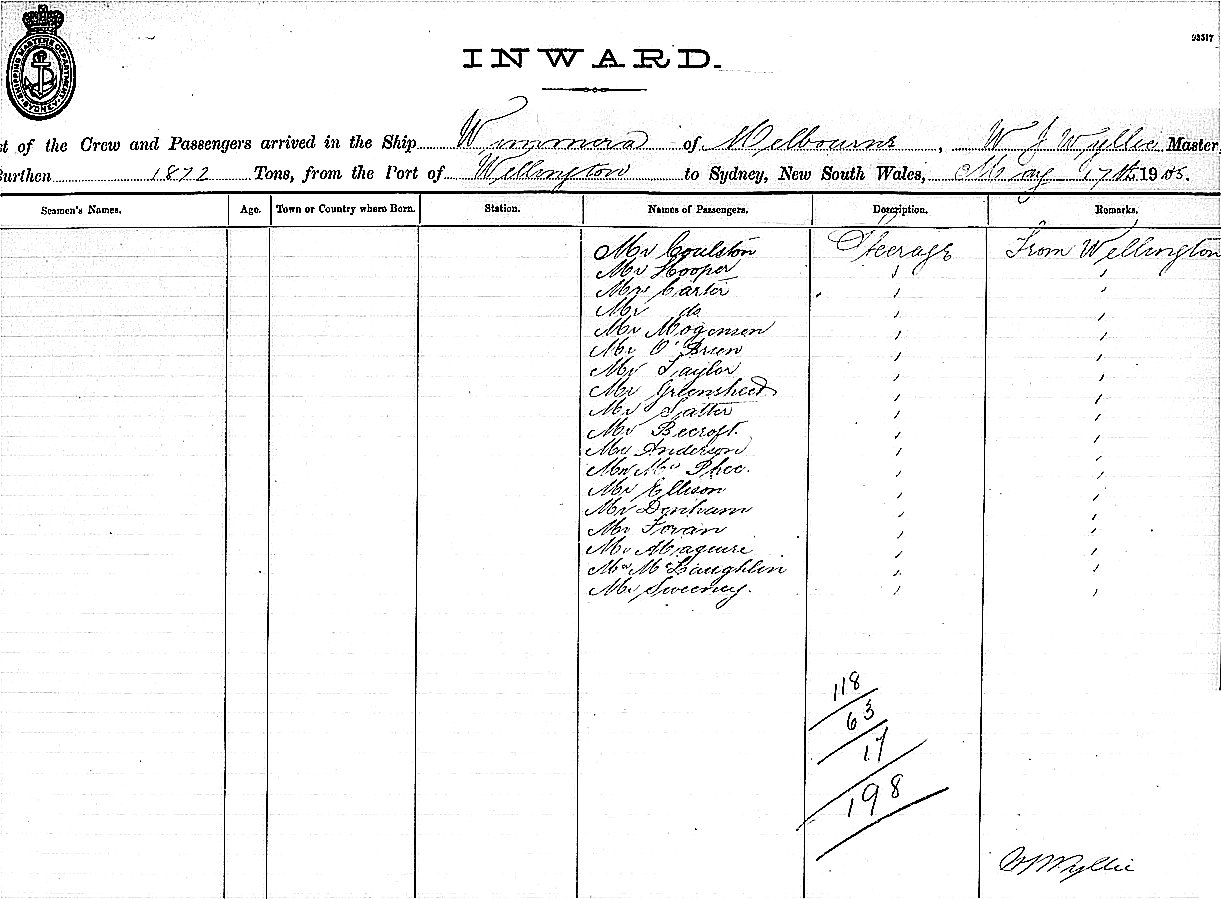 SHIPPING MASTERS DEPARTMENT SYDNEY
23517
INWARD.
st of the Crew and Passengers arrived in the Ship Wimmera of Melbourne, W J Wyllie Master
Burthen 1872 Tons, from the Port of Wellington to Sydney, New South Wales, May 17th 1905.
Seamen's Names. Age. Town or Country where Born. Station. Names of Passengers. Description. Remarks.
Mr Coulston Steerage From Wellington
Mr Hooper " "
Mrs Carter " "
Mr do " "
Mr Mogensen " "
Mr O'Brien " "
Mr Taylor " "
Mr Greensheed " "
Mr Satter " "
Mr Becroft. " "
Mr Anderson " "
Mr McPhee. " "
Mr Ellison " "
Mr Denham " "
Mr Foran " "
Mr Maguire " "
Mr McLaughlin " "
Mr Sweeney. " "
118
63
17
198
WJWyllie